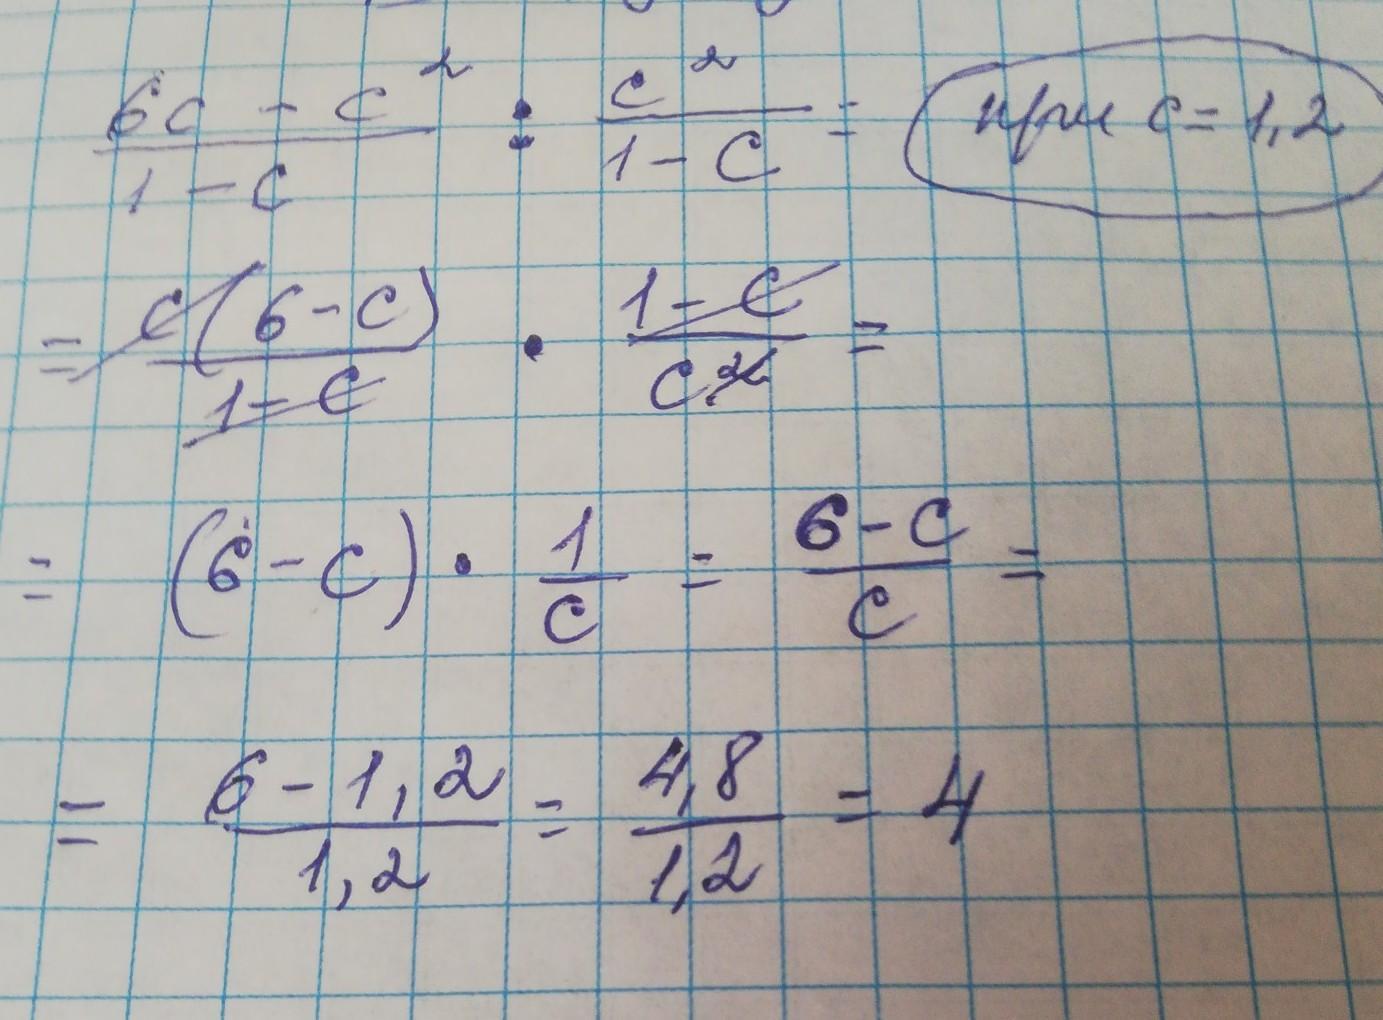 (6c - c²)/(1 - c) : c²/(1 - c) = при c = 1,2
= c(6 - c)/(1 - c) · (1 - c)/c² =
= (6 - c) · 1/c = (6 - c)/c =
= (6 - 1,2)/1,2 = 4,8/1,2 = 4